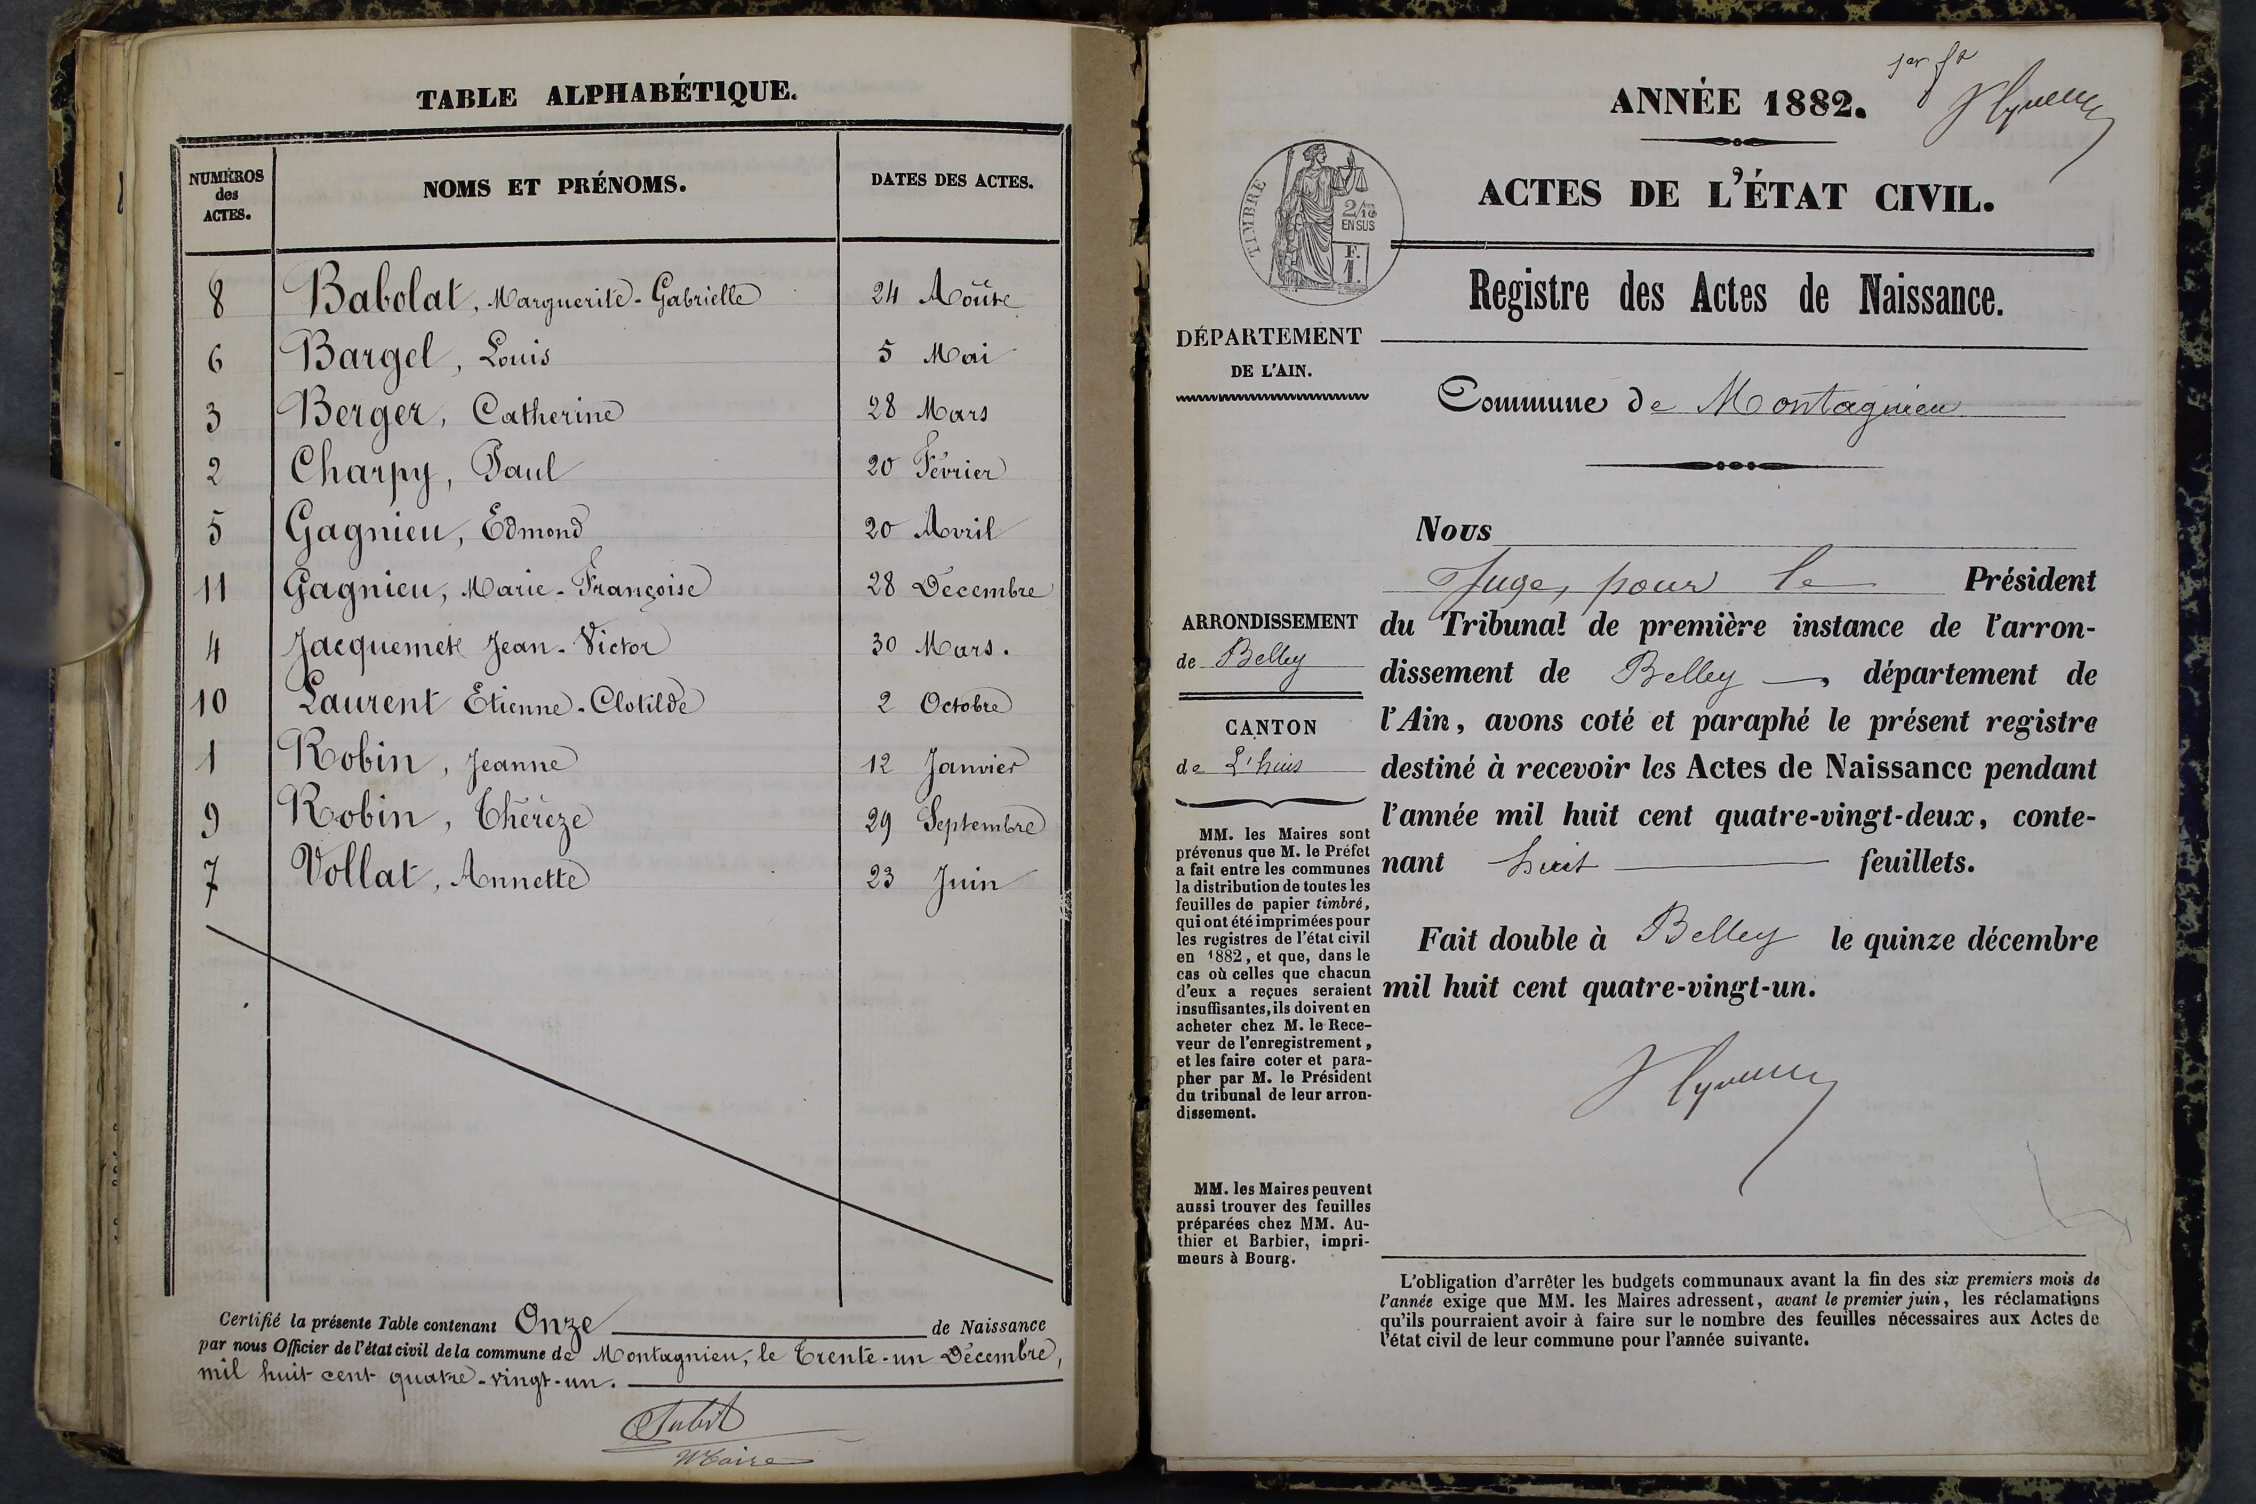 TABLE ALPHABÉTIQUE.
NUMÉROS des ACTES. NOMS ET PRÉNOMS. DATES DES ACTES.
8 Babolat, Marguerite-Gabrielle 24 Août
6 Bargel, Louis 5 Mai
3 Berger, Catherine 28 Mars
2 Charpy, Paul 20 Février
5 Gagnieu, Edmond 20 Avril
11 Gagnieu, Marie-Françoise 28 Décembre
4 Jacquemet Jean-Victor 30 Mars.
10 Laurent Etienne-Clotilde 2 Octobre
1 Robin, Jeanne 12 Janvier
9 Robin, Thérèze 29 Septembre
7 Vollat, Annette 23 Juin
Certifié la présente Table contenant Onze de Naissance
par nous Officier de l'état civil de la commune de Montagnieu, le Trente-un Décembre,
mil huit cent quatre-vingt-un.
Maire
ANNÉE 1882.
ACTES DE L'ÉTAT CIVIL.
TIMBRE
2/10
EN SUS
F.
1.
Registre des Actes de Naissance.
DÉPARTEMENT
DE L'AIN.
Commune de Montagnieu
Nous
Juge, pour le Président
du Tribunal de première instance de l'arron-
dissement de Belley, département de
l'Ain, avons coté et paraphé le présent registre
destiné à recevoir les Actes de Naissance pendant
l'année mil huit cent quatre-vingt-deux, conte-
nant huit feuillets.
Fait double à Belley le quinze décembre
mil huit cent quatre-vingt-un.
ARRONDISSEMENT
de Belley
CANTON
de L'huis
MM. les Maires sont
prévenus que M. le Préfet
a fait entre les communes
la distribution de toutes les
feuilles de papier timbré,
qui ont été imprimées pour
les registres de l'état civil
en 1882, et que, dans le
cas où celles que chacun
d'eux a reçues seraient
insuffisantes, ils doivent en
acheter chez M. le Rece-
veur de l'enregistrement,
et les faire coter et para-
pher par M. le Président
du tribunal de leur arron-
dissement.
MM. les Maires peuvent
aussi trouver des feuilles
préparées chez MM. Au-
thier et Barbier, impri-
meurs à Bourg.
L'obligation d'arrêter les budgets communaux avant la fin des six premiers mois de
l'année exige que MM. les Maires adressent, avant le premier juin, les réclamations
qu'ils pourraient avoir à faire sur le nombre des feuilles nécessaires aux Actes de
l'état civil de leur commune pour l'année suivante.